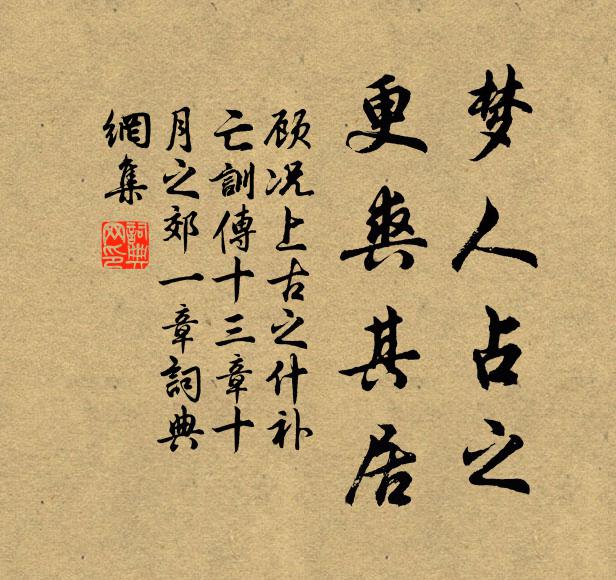 梦人占之
更爽其居
顾况上古之什补
亡訓傳十三章十
月之郊一章詞典
網集
詞典
网印